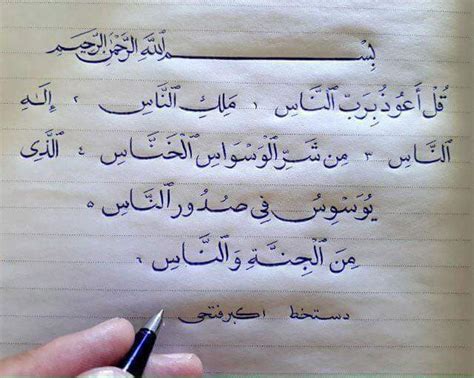 بِسْمِ ٱللَّهِ ٱلرَّحْمَٰنِ ٱلرَّحِيمِ
قُلْ أَعُوذُ بِرَبِّ ٱلنَّاسِ ١ مَلِكِ ٱلنَّاسِ ٢ إِلَٰهِ
ٱلنَّاسِ ٣ مِن شَرِّ ٱلْوَسْوَاسِ ٱلْخَنَّاسِ ٤ ٱلَّذِي
يُوَسْوِسُ فِي صُدُورِ ٱلنَّاسِ ٥
مِنَ ٱلْجِنَّةِ وَٱلنَّاسِ ٦
دستخط اکبر فتحی